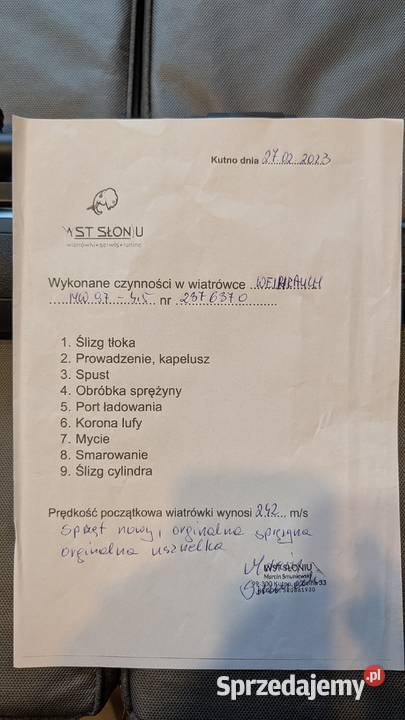 Kutno dnia 27.02.2023
WST SŁONIU
wiatrówki • serwis • tuning
Wykonane czynności w wiatrówce WEIHRAUCH
HW 97 - 4,5 nr 2376370
1. Ślizg tłoka
2. Prowadzenie, kapelusz
3. Spust
4. Obróbka sprężyny
5. Port ładowania
6. Korona lufy
7. Mycie
8. Smarowanie
9. Ślizg cylindra
Prędkość początkowa wiatrówki wynosi 242 m/s
Sprzęt nowy, orginalna sprężyna
orginalna uszczelka
WST SŁONIU
Marcin
99-300 Kutno
Sprzedajemy.pl